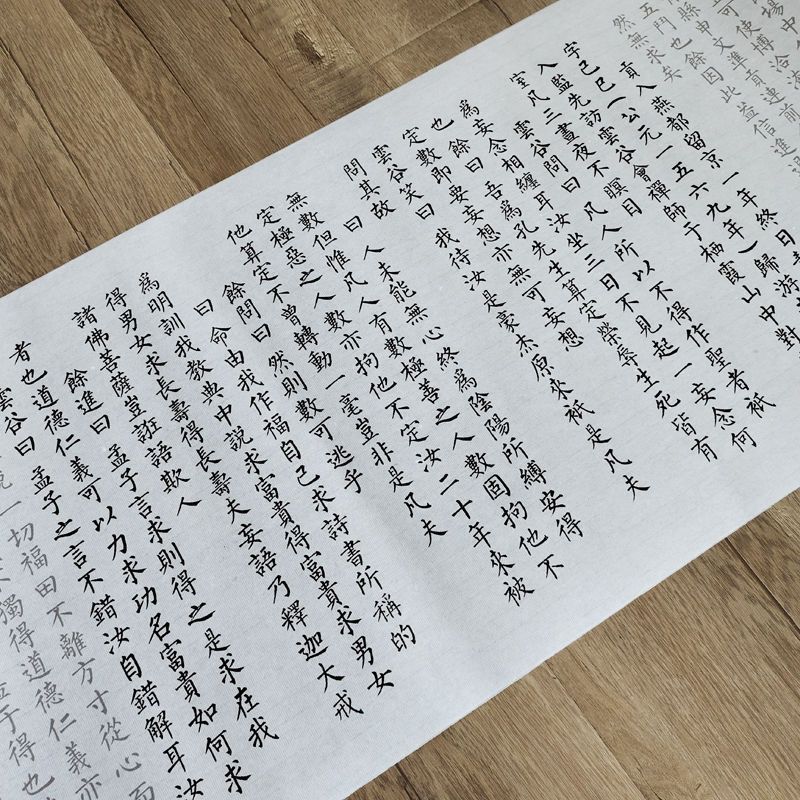 場中
可使博洽淹
縣申文準貢連前
五門也餘因此益信進
然無求矣
貢入燕都留京一年終日
字己巳（公元一五六九年）歸游
入監先訪雲谷會禪師于栖霞山中對
室凡三晝夜不瞑目
雲谷問曰凡人所以不得作聖者衹
為妄念相纏耳汝坐三日不見起一妄念何
也餘曰吾為孔先生算定榮辱生死皆有
定數即要妄想亦無可妄想
雲谷笑曰我待汝是豪杰原來衹是凡夫
問其故曰人未能無心終為陰陽所縛安得
無數但惟凡人有數極善之人數固拘他不
定極惡之人數亦拘他不定汝二十年來被
他算定不曾轉動一毫豈非是凡夫
餘問曰然則數可逃乎
曰命由我作福自己求詩書所稱的
為明訓我教典中說求富貴得富貴求男女
得男女求長壽得長壽夫妄語乃釋迦大戒
諸佛菩薩豈誑語欺人
餘進曰孟子言求則得之是求在我
者也道德仁義可以力求功名富貴如何求
雲谷曰孟子之言不錯汝自錯解耳汝
說一切福田不離方寸從心而
獨得道德仁義亦
于得也